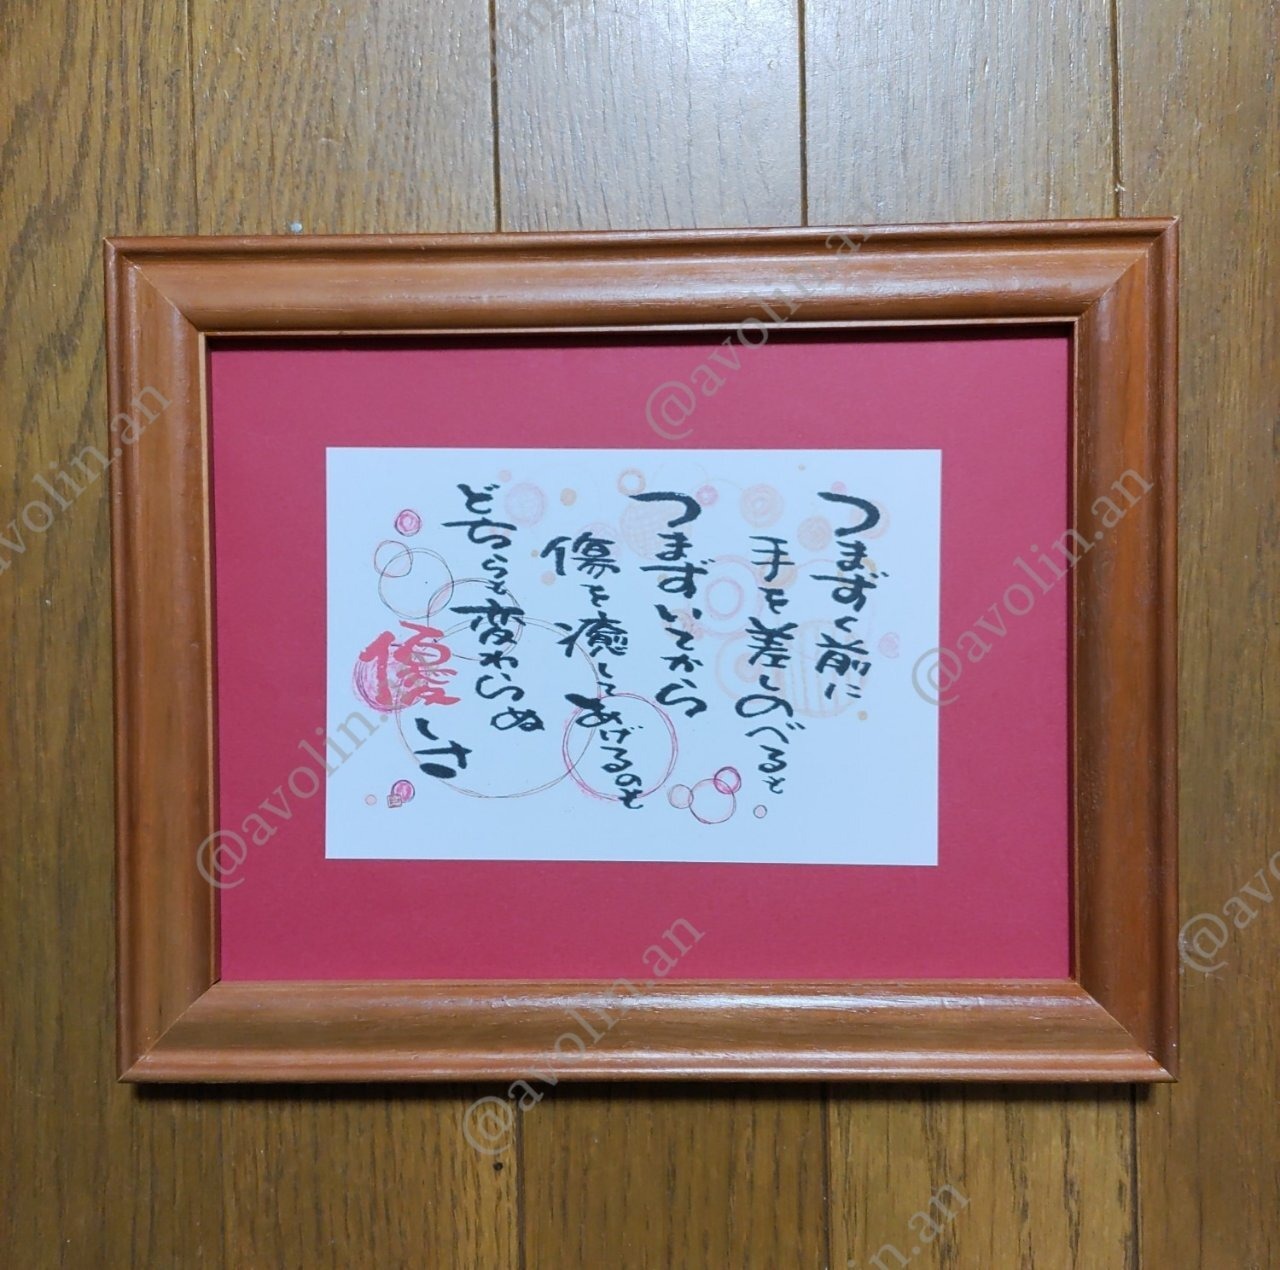 つまずく前に
手を差しのべると
つまずいてから
傷を癒してあげるのも
どちらも変わらぬ
優しさ
@avolin.an
@avolin.an
@avolin.an
@avolin.an
@avolin.an